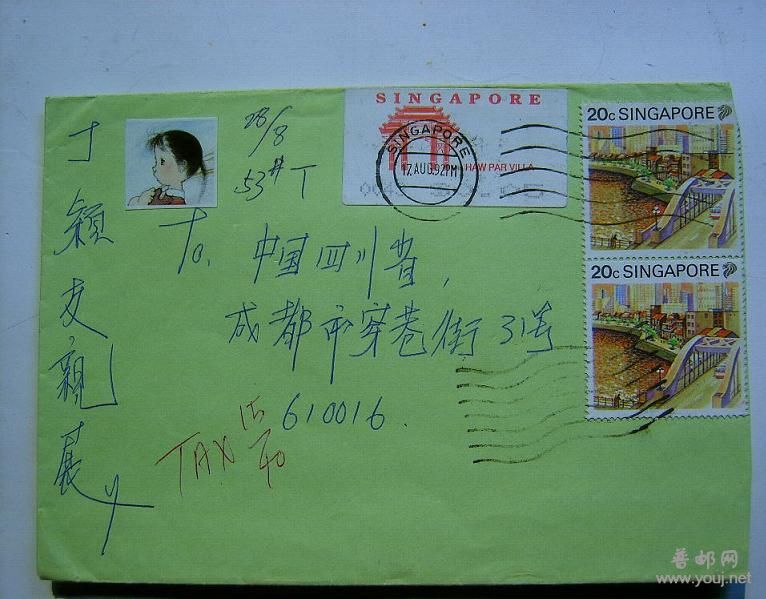 丁颖友親展
28/8
53# T
To,
中国四川省,
成都市穿巷街31号
610016.
TAX 15/40
SINGAPORE
HAW PAR VILLA
SINGAPORE
17.AUG.92PM
20c SINGAPORE
20c SINGAPORE
普邮网
www.youj.net